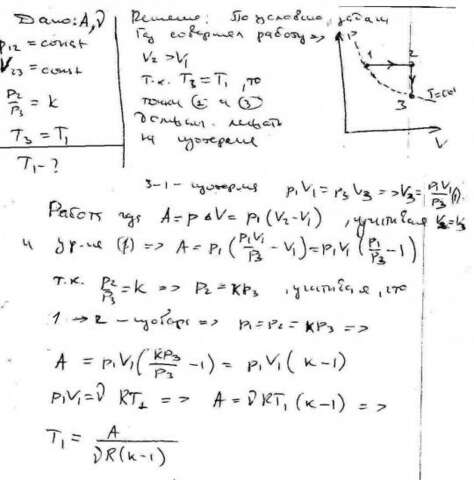 Дано: A, ν
p₁₂ = const
V₂₃ = const
p₂/p₃ = k
T₃ = T₁
T₁ - ?
Решение: По условию, задачи
Газ совершал работу =>
V₂ > V₁
т.к. T₃ = T₁, то
точки ② и ③
должны лежать
на изотерме
P
1
2
3
T = con
V
3-1 - изотерма p₁V₁ = p₃V₃ => V₃ = p₁V₁/p₃
Работа газа A = pΔV = p₁(V₂ - V₁), учитывая V₂ = V₃
и ур-ие (1) => A = p₁(p₁V₁/p₃ - V₁) = p₁V₁(p₁/p₃ - 1)
т.к. p₂/p₃ = k => p₂ = kp₃, учитывая, что
1 → 2 - изобара => p₁ = p₂ = kp₃ =>
A = p₁V₁(kp₃/p₃ - 1) = p₁V₁(k - 1)
p₁V₁ = ν RT₁ => A = νRT₁(k - 1) =>
T₁ = A/νR(k-1)